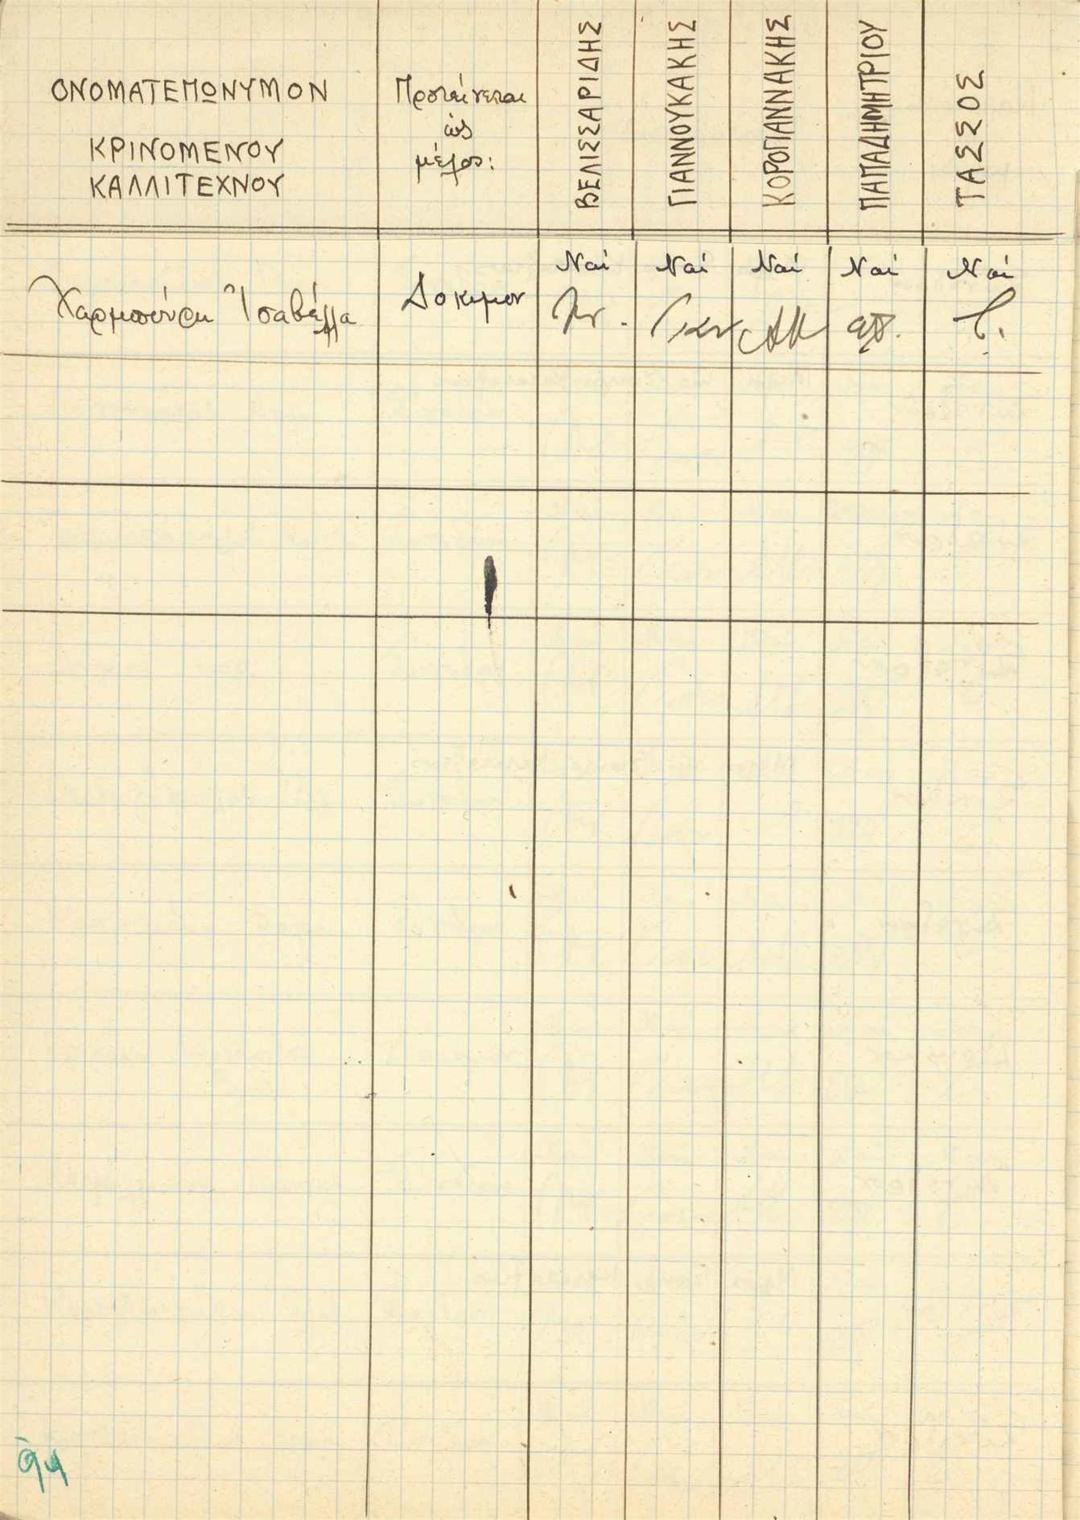 ΟΝΟΜΑΤΕΠΩΝΥΜΟΝ
ΚΡΙΝΟΜΕΝΟΥ
ΚΑΛΛΙΤΕΧΝΟΥ
Προτείνεται
ὡς
μέλος:
ΒΕΛΙΣΣΑΡΙΔΗΣ
ΓΙΑΝΝΟΥΚΑΚΗΣ
ΚΟΡΟΓΙΑΝΝΑΚΗΣ
ΠΑΠΑΔΗΜΗΤΡΙΟΥ
ΤΑΣΣΟΣ
Χαρμπούρη Ἰσαβέλλα
Δοκιμον
Ναί
Ναί
Ναί
Ναί
Ναί
94